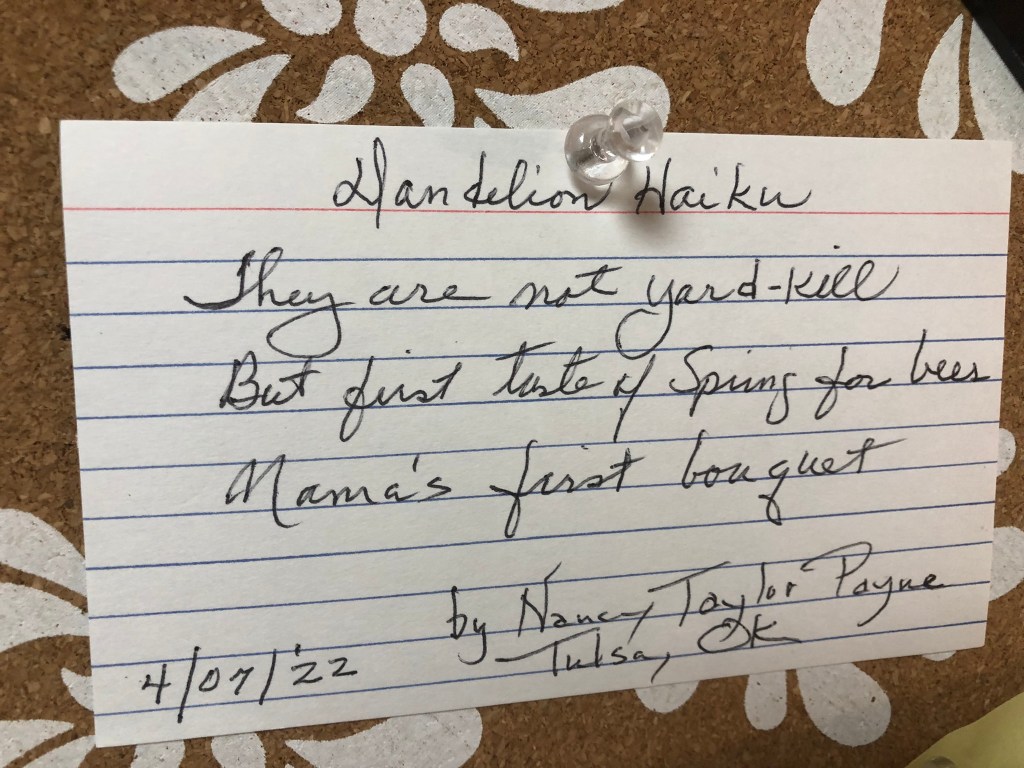 Dandelion Haiku
They are not yard-kill
But first taste of Spring for bees
Mama's first bouquet
by Nancy Taylor Payne
Tulsa, OK
4/07/'22